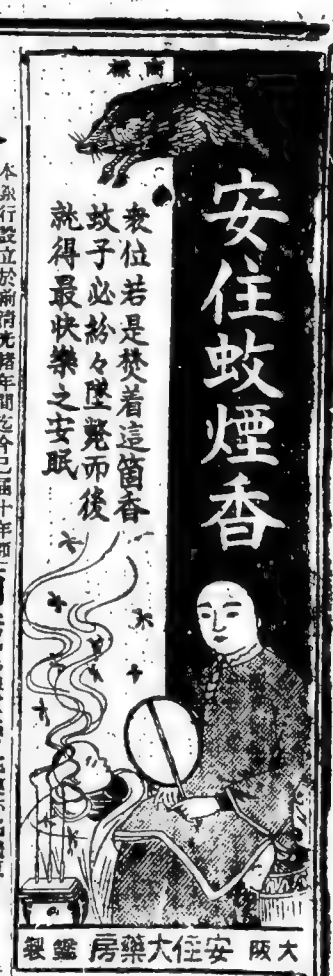 商標
安住蚊煙香
衆位若是焚着這箇香
蚊子必紛々墜斃而後
就得最快樂之安眠
大阪 安住大藥房 鑑製
行設立於前清光緒年間迄今已屆十年